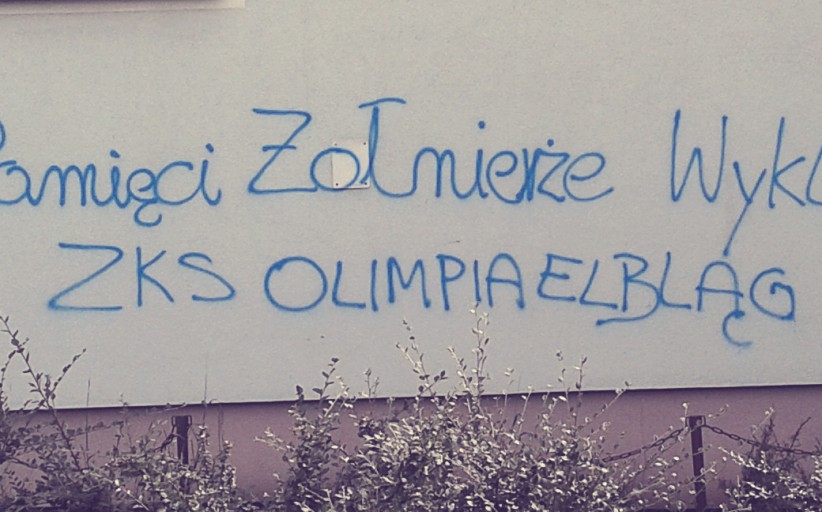 Pamięci Żołnierze Wykl
ZKS OLIMPIA ELBLĄG